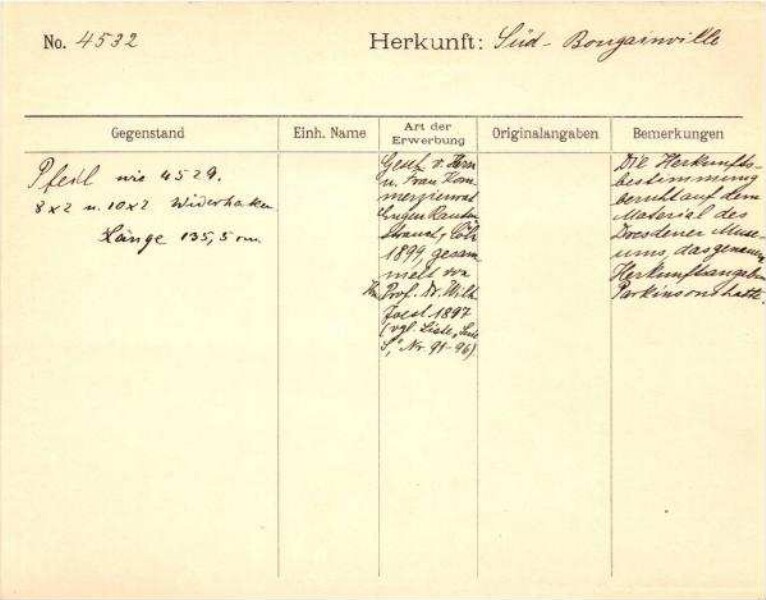 No. 4532
Herkunft: Süd-Bougainville
Gegenstand
Einh. Name
Art der Erwerbung
Originalangaben
Bemerkungen
Pfeil wie 4529.
8x2 u. 10x2 Widerhaken
Länge 135,5 cm.
Gesch. v. Herrn
u. Frau Kom-
merzienrat
Eugen Rauten
strauch, Cöln
1899, gesam
melt von
Prof. Dr. Wilh
Joest 1897
(vgl. Liste
S," Nr. 91-96)
Die Herkunfts-
bestimmung
beruht auf dem
Material des
Dresdener Muse-
ums, das genaue
Herkunftsangaben
Parkinsons hatte.